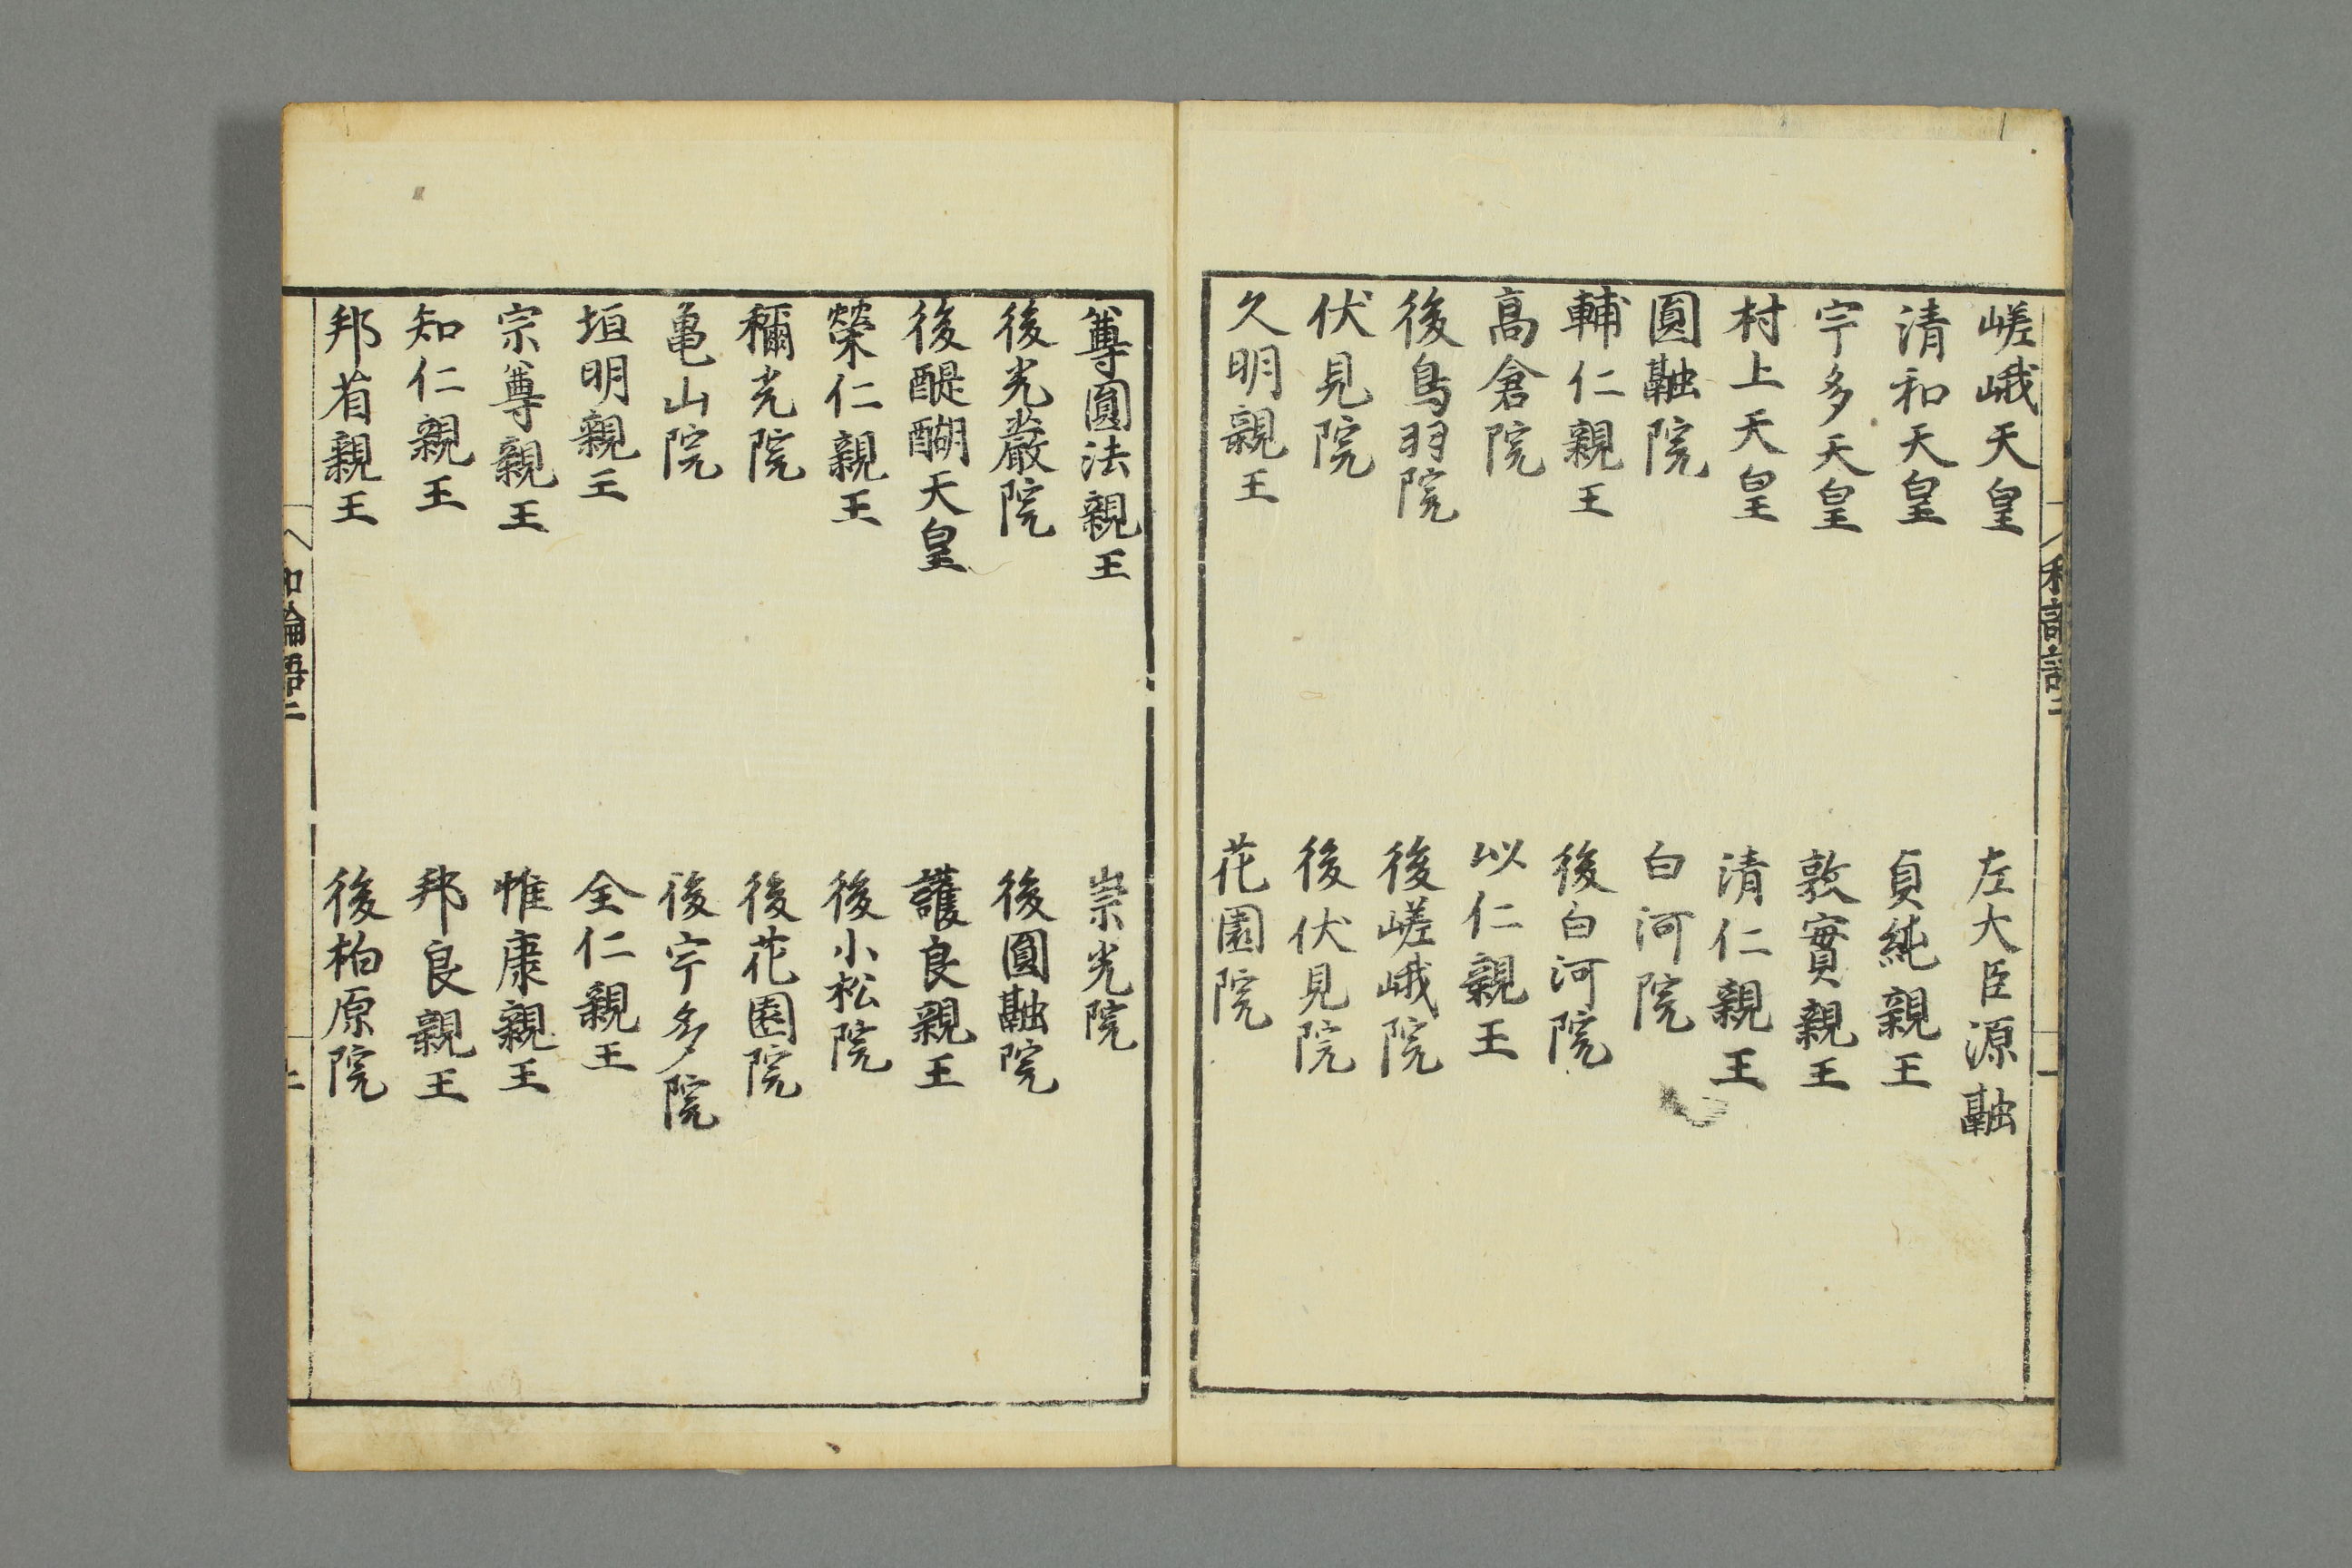 嵯峨天皇
左大臣源融
清和天皇
貞純親王
宇多天皇
敦實親王
村上天皇
清仁親王
圓融院
白河院
輔仁親王
後白河院
高倉院
以仁親王
後鳥羽院
後嵯峨院
伏見院
後伏見院
久明親王
花園院
尊圓法親王
崇光院
後光嚴院
後圓融院
後醍醐天皇
護良親王
榮仁親王
後小松院
稱光院
後花園院
亀山院
後宇多院
垣明親王
全仁親王
宗尊親王
惟康親王
知仁親王
邦良親王
邦省親王
後柏原院
和論語二